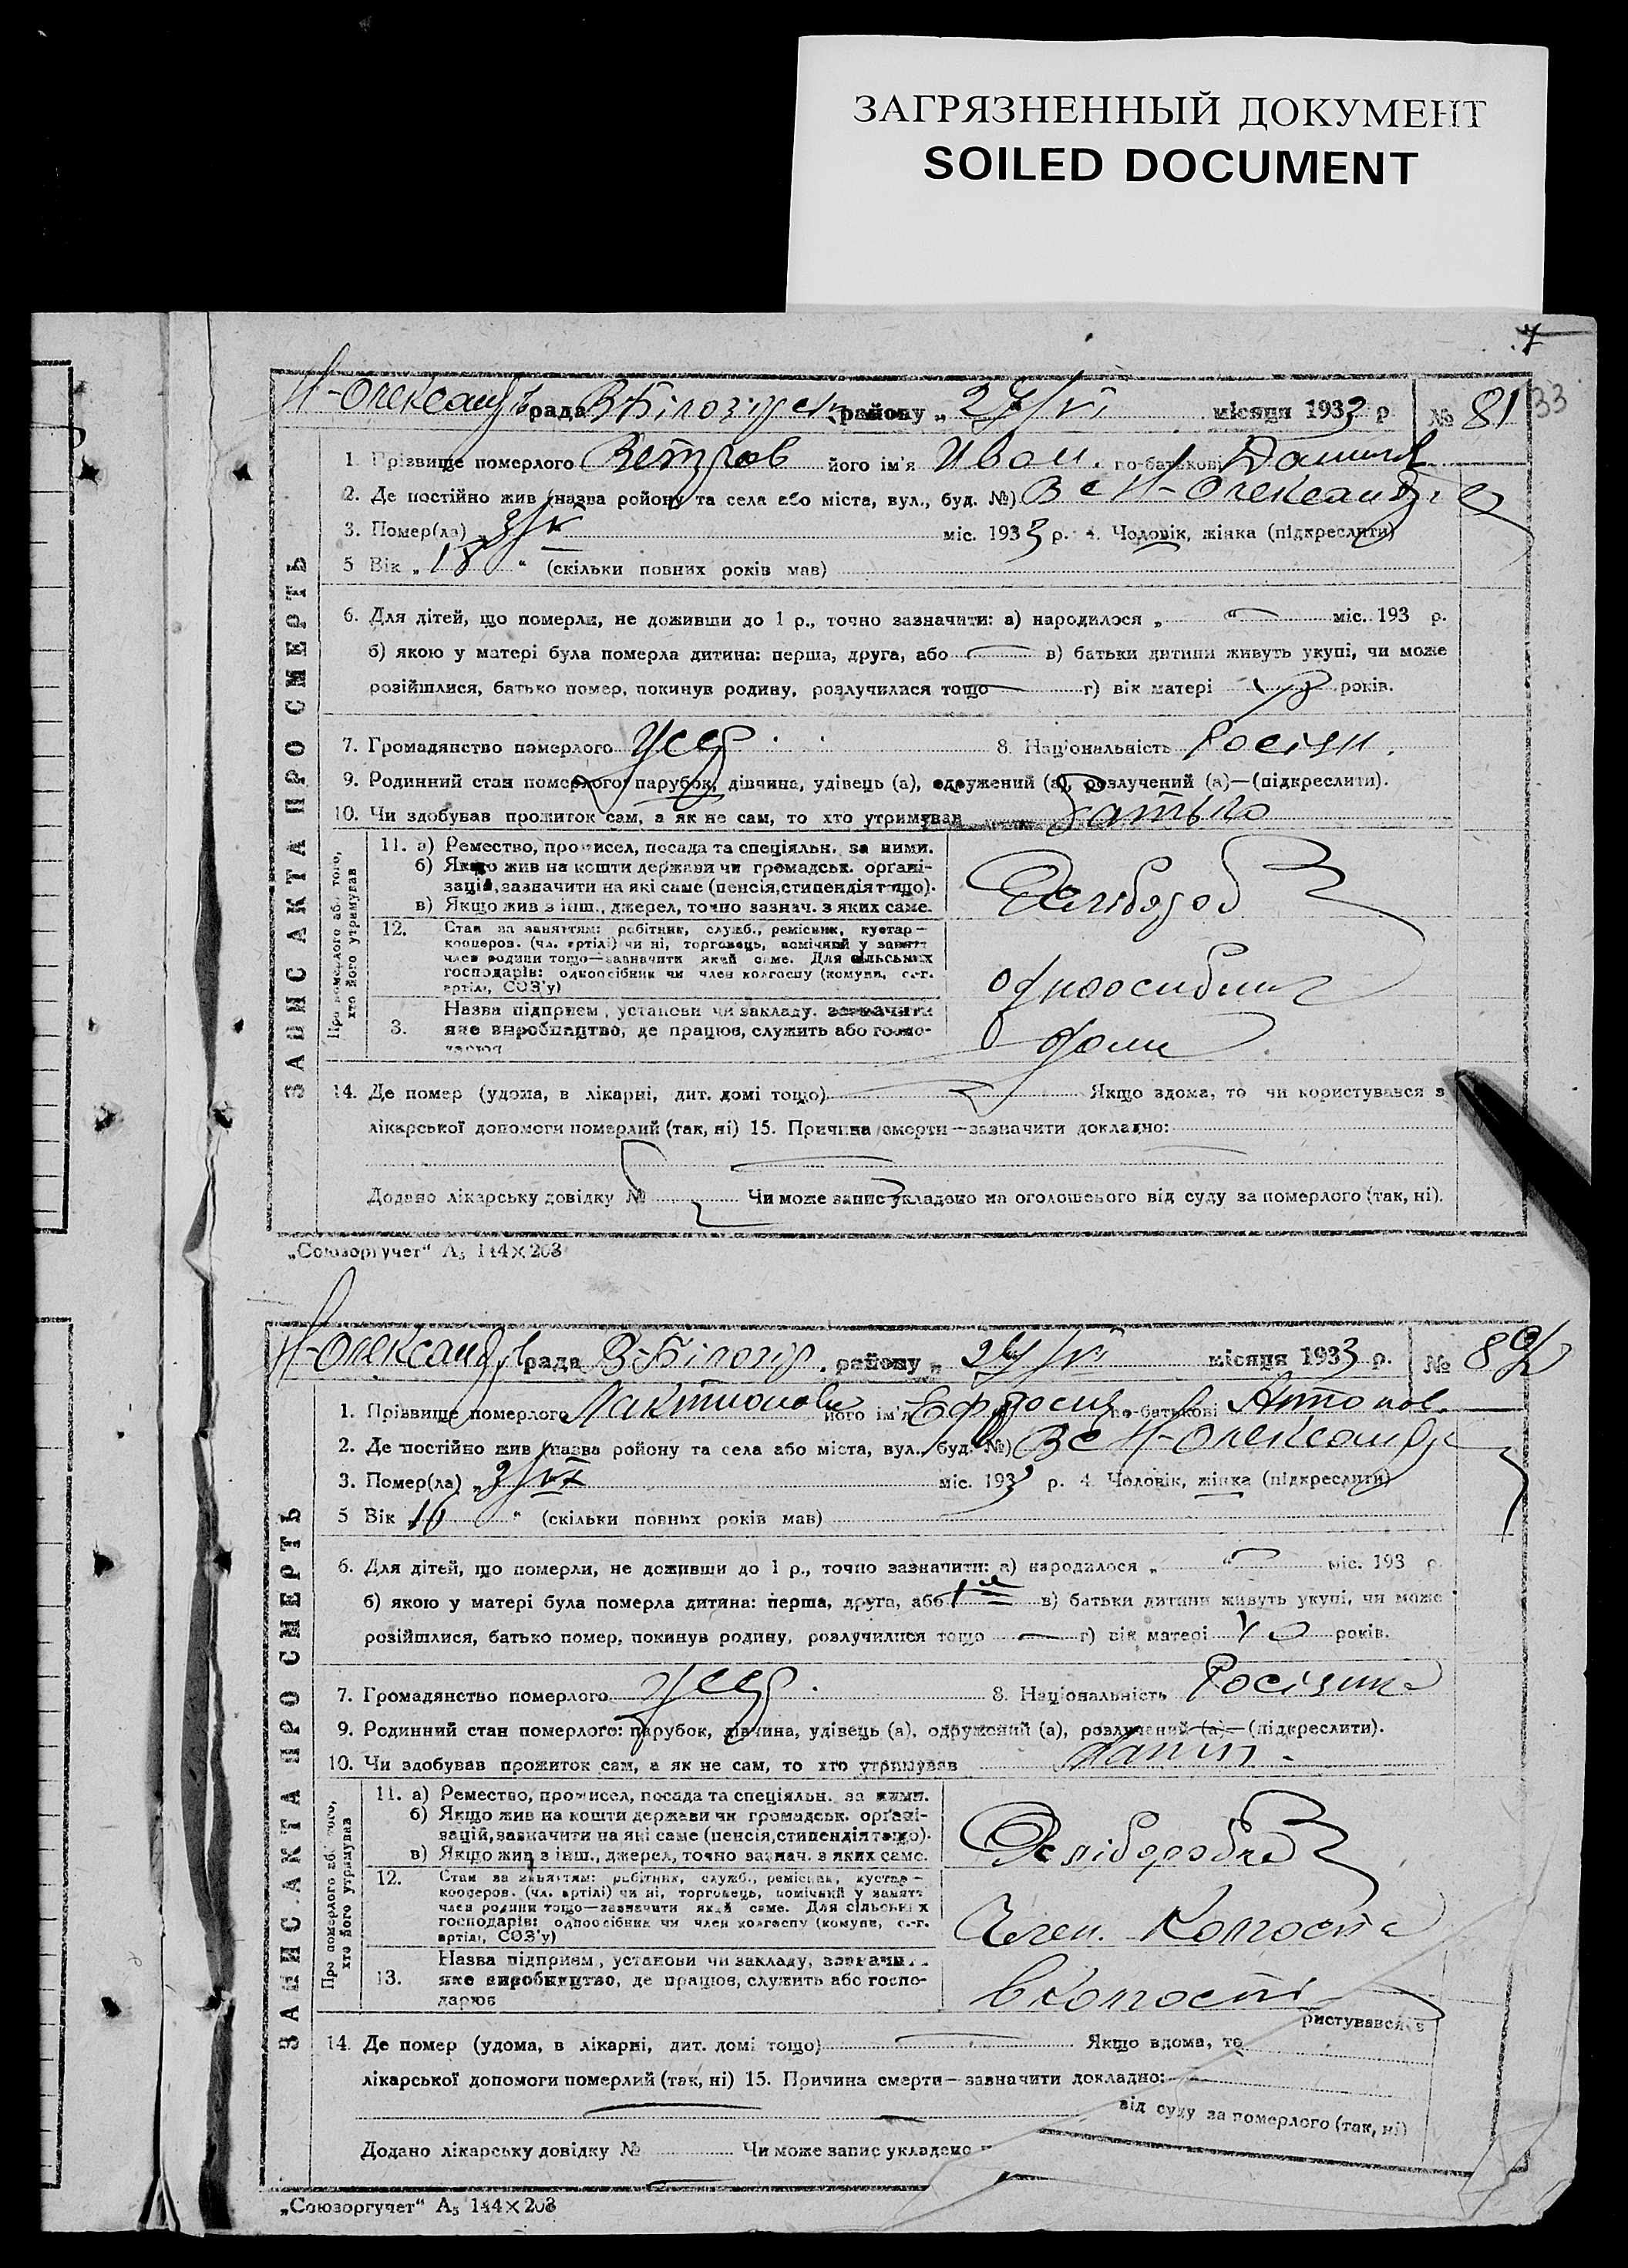 ЗАГРЯЗНЕННЫЙ ДОКУМЕНТ
SOILED DOCUMENT
7
33
Н-Олександрів рада В Білозірськ району „ 24/VI місяця 1933 р № 81
ЗАПИС АКТА ПРО СМЕРТЬ
1 Прізвище померлого Ветров його ім'я Иван. по-батькові
2. Де постійно жив (назва району та села або міста, вул., буд. №) В с Н-Олександр
3. Помер(ла) міс. 1933 р. 4. Чоловік, жінка (підкреслити)
5 Вік „ 18 “ (скільки повних років мав)
6. Для дітей, що померли, не доживши до 1 р., точно зазначити: а) народилося „ “ міс. 193 р.
б) якою у матері була померла дитина: перша, друга, або в) батьки дитини живуть укупі, чи може
розійшлися, батько помер, покинув родину, розлучилися тощо г) вік матері років.
7. Громадянство померлого УССР 8. Національність Росіян.
9. Родинний стан померлого: парубок, дівчина, удівець (а), одружений (а), розлучений (а)—(підкреслити).
10. Чи здобував прожиток сам, а як не сам, то хто утримував батько
Про померлого або того, хто його утримував
11. а) Ремество, промисел, посада та спеціяльн. за ними.
б) Якщо жив на кошти держави чи громадськ. орґані-
зацій, зазначити на які саме (пенсія, стипендія тощо).
в) Якщо жив з інш., джерел, точно зазнач. з яких саме.
Хлібороб
12. Стан за заняттям: робітник, служб., ремісник, кустар—
кооперов. (чл. артілі) чи ні, торговець, помічний у занятт
член родини тощо—зазначити який саме. Для сільських
господарів: одноосібник чи член колгоспу (комуни, с.-г.
артілі, СОЗ'у)
одноосибник
3. Назва підприєм, установи чи закладу, зазначити
яке виробництво, де працює, служить або госпо-
дарює
дома
14. Де помер (удома, в лікарні, дит. домі тощо) Якщо вдома, то чи користувався з
лікарської допомоги померлий (так, ні) 15. Причина смерти—зазначити докладно:
Додано лікарську довідку № Чи може запис укладено на оголошеного від суду за померлого (так, ні).
„Союзоргучет“ А5 144×203
Н-Олександрів рада В-Білозір. району „ 24/VI місяця 1933 р. № 82
ЗАПИС АКТА ПРО СМЕРТЬ
1. Прізвище померлого Лактионова його ім'я Ефросия по-батькові Антонов.
2. Де постійно жив (назва району та села або міста, вул., буд. №) В с Н-Олександр
3. Помер(ла) міс. 193 р. 4. Чоловік, жінка (підкреслити)
5 Вік „ “ (скільки повних років мав)
6. Для дітей, що померли, не доживши до 1 р., точно зазначити: а) народилося „ “ міс. 193 р.
б) якою у матері була померла дитина: перша, друга, або в) батьки дитини живуть укупі, чи може
розійшлися, батько помер, покинув родину, розлучилися тощо г) вік матері 40 років.
7. Громадянство померлого УССР. 8. Національність Росіянка
9. Родинний стан померлого: парубок, дівчина, удівець (а), одружений (а), розлучений (а)—(підкреслити).
10. Чи здобував прожиток сам, а як не сам, то хто утримував
Про померлого або того, хто його утримував
11. а) Ремество, промисел, посада та спеціяльн. за ними.
б) Якщо жив на кошти держави чи громадськ. орґані-
зацій, зазначити на які саме (пенсія, стипендія тощо).
в) Якщо жив з інш., джерел, точно зазнач. з яких саме.
12. Стан за заняттям: робітник, служб., ремісник, кустар—
кооперов. (чл. артілі) чи ні, торговець, помічний у занятт
член родини тощо—зазначити який саме. Для сільських
господарів: одноосібник чи член колгоспу (комуни, с.-г.
артілі, СОЗ'у)
Член. Колгоспа
13. Назва підприєм, установи чи закладу, зазначи
яке виробництво, де працює, служить або госпо-
дарює
в колгоспі
14. Де помер (удома, в лікарні, дит. домі тощо) Якщо вдома, то ристувався з
лікарської допомоги померлий (так, ні) 15. Причина смерти—зазначити докладно:
від суду за померлого (так, ні)
Додано лікарську довідку № Чи може запис укладено
„Союзоргучет“ А5 144×203